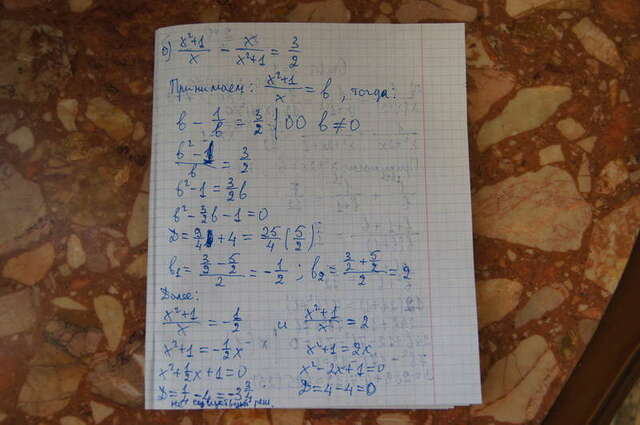 б) (x²+1)/x − x/(x²+1) = 3/2
Принимаем: (x²+1)/x = b, тогда:
b − 1/b = 3/2 | ОО b ≠ 0
(b²−1)/b = 3/2
b²−1 = 3/2 b
b² − 3/2 b − 1 = 0
D = 9/4 + 4 = 25/4 (5/2)²
b₁ = (3/2 − 5/2)/2 = −1/2 ; b₂ = (3/2 + 5/2)/2 = 2
Далее:
(x²+1)/x = −1/2 и (x²+1)/x = 2
x²+1 = −1/2 x x²+1 = 2x
x² + 1/2 x + 1 = 0 x² − 2x + 1 = 0
D = 1/4 − 4 = −3 3/4 D = 4 − 4 = 0
реш.